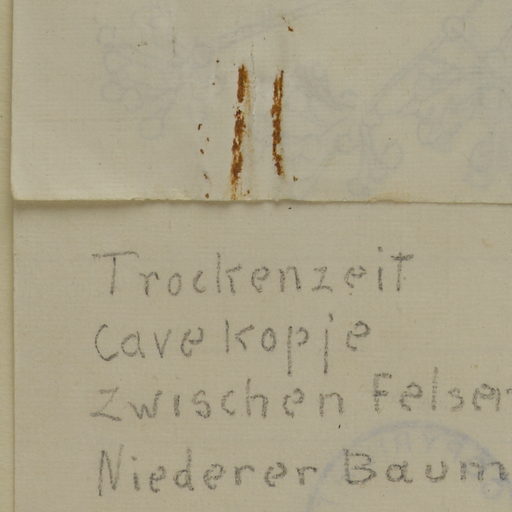 Trockenzeit
Cavekopje
Zwischen Felsen
Niederer Baum